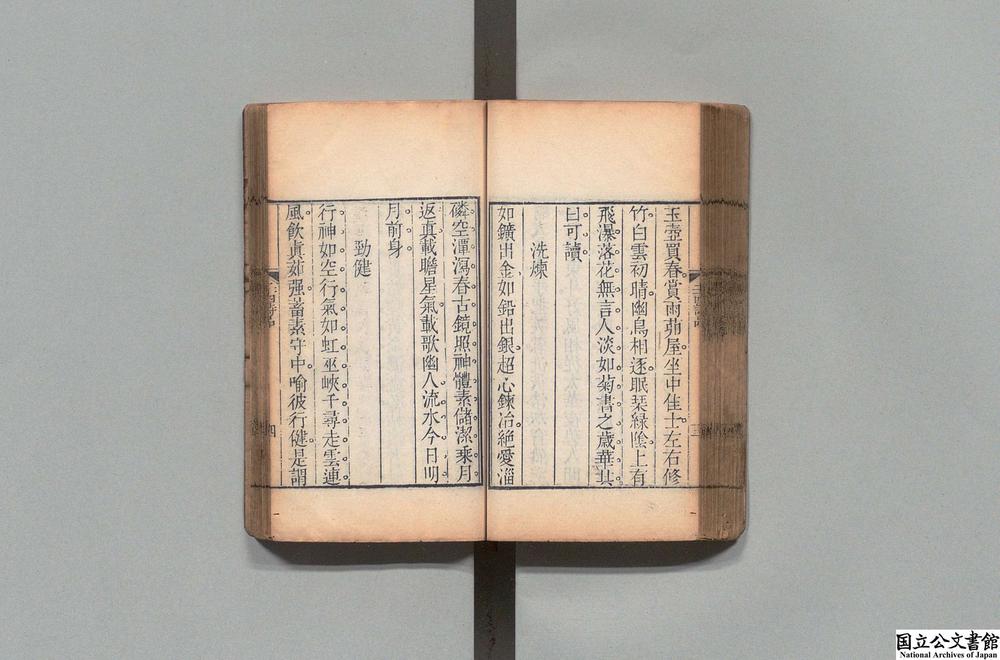 玉壺買春賞雨茆屋坐中佳士左右修
竹白雲初晴幽鳥相逐眠琹綠陰上有
飛瀑落花無言人淡如菊書之歲華其
曰可讀
洗煉
如鑛出金如鉛出銀超心鍊冶絕愛淄
磷空潭瀉春古鏡照神體素儲潔乘月
返眞載瞻星氣載歌幽人流水今日明
月前身
勁健
行神如空行氣如虹巫峽千尋走雲連
風飮眞茹强蓄素守中喻彼行健是謂
四
国立公文書館
National Archives of Japan